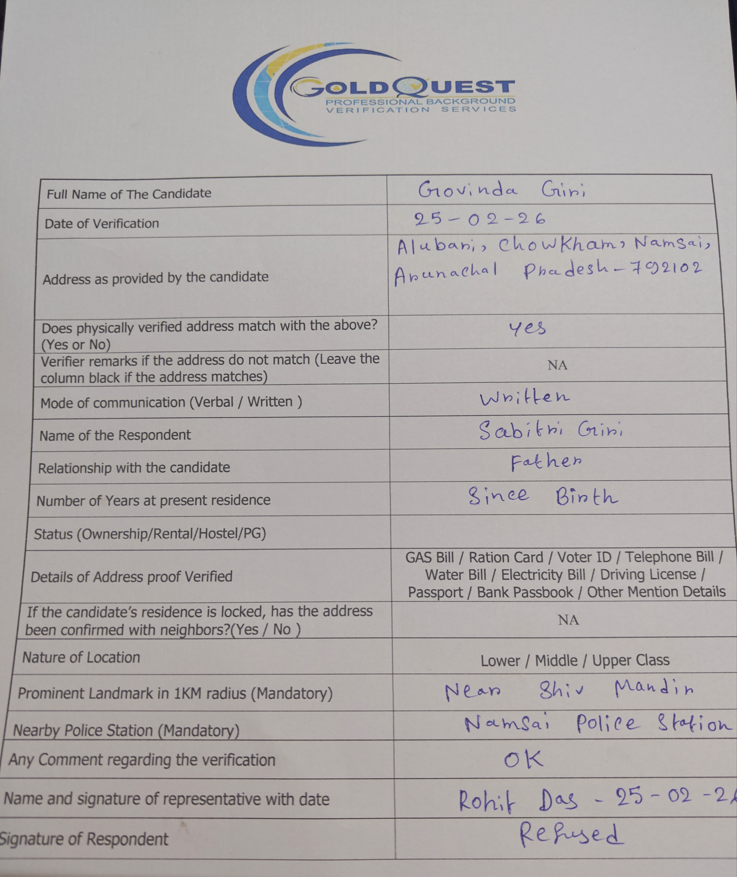 GOLDQUEST
PROFESSIONAL BACKGROUND
VERIFICATION SERVICES
Full Name of The Candidate Govinda Giri
Date of Verification 25-02-26
Address as provided by the candidate Alubari, Chowkham, Namsai,
Arunachal Pradesh - 792102
Does physically verified address match with the above? yes
(Yes or No)
Verifier remarks if the address do not match (Leave the NA
column black if the address matches)
Mode of communication (Verbal / Written ) Written
Name of the Respondent Sabitri Giri
Relationship with the candidate Father
Number of Years at present residence Since Birth
Status (Ownership/Rental/Hostel/PG)
Details of Address proof Verified GAS Bill / Ration Card / Voter ID / Telephone Bill /
Water Bill / Electricity Bill / Driving License /
Passport / Bank Passbook / Other Mention Details
If the candidate's residence is locked, has the address NA
been confirmed with neighbors?(Yes / No )
Nature of Location Lower / Middle / Upper Class
Prominent Landmark in 1KM radius (Mandatory) Near Shiv Mandir
Nearby Police Station (Mandatory) Namsai Police Station
Any Comment regarding the verification OK
Name and signature of representative with date Rohit Das - 25-02-2
Signature of Respondent Refused